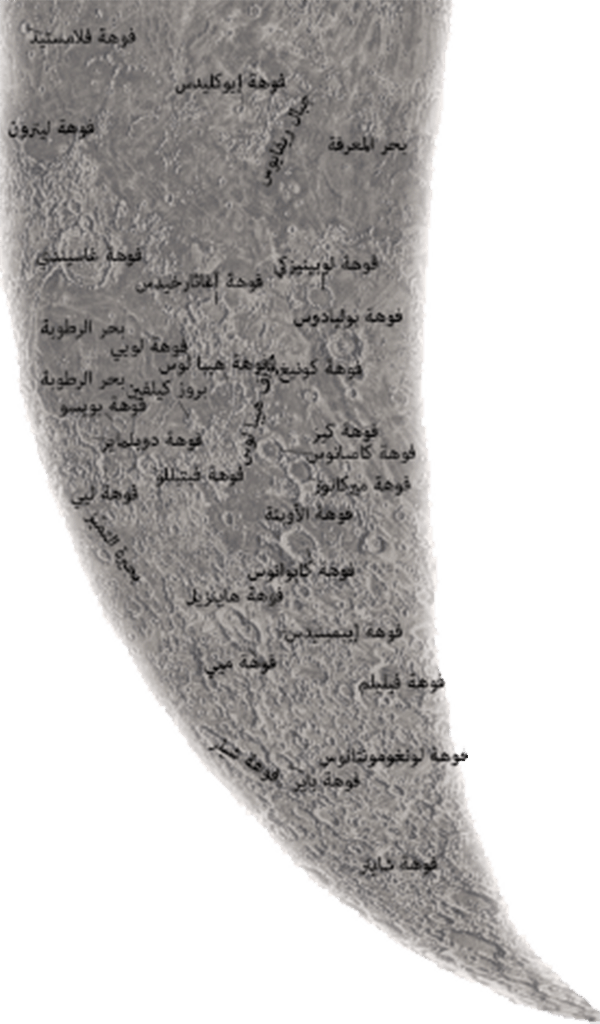 فوهة فلامستيد
فوهة إيوكليدس
جبال ريفايوس
فوهة ليترون
بحر المعرفة
فوهة غاسيندي
فوهة لوبينيزكي
فوهة أغاثارخيدس
فوهة بوليادوس
بحر الرطوبة
فوهة لويي
فوهة هيبالوس
فوهة كونيغ
بحر الرطوبة
بروز كيلفين
فوهة بويسو
هيبا لوس
فوهة كبر
فوهة دوبلماير
فوهة كامبانوس
فوهة فيتيللو
فوهة ميركاتور
فوهة ليي
فوهة الأوبئة
بحيرة التميز
فوهة كابوانوس
فوهة هاينزيل
فوهة إبيمنيدس
فوهة ميي
فوهة فيليلم
فوهة لونغومونتانوس
فوهة شيلر
فوهة باير
فوهة شاينر